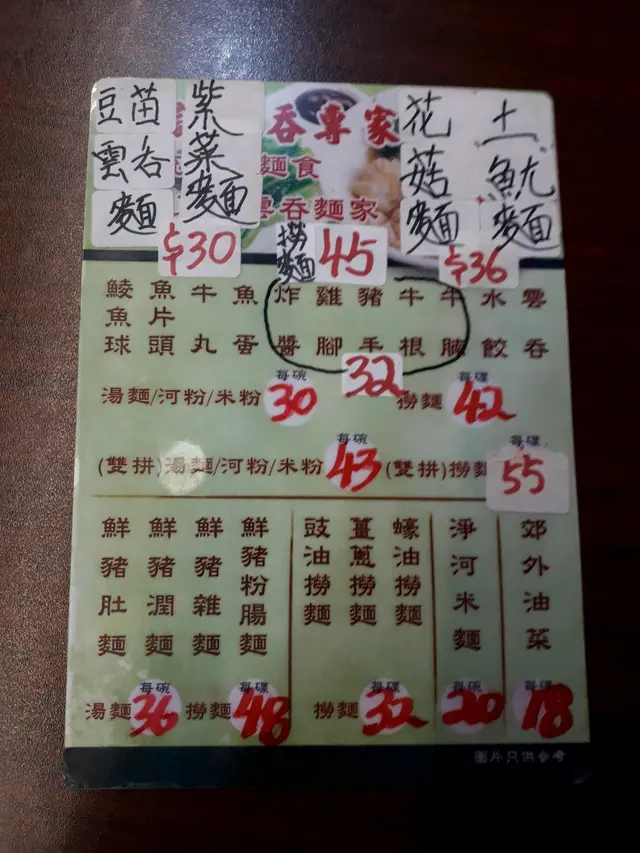 豆苗
雲呑
麵
紫菜麵
$30
呑專家
麵食
雲呑麵家
撈麵 45
花菇麵
土魷麵
$36
鯪魚球
魚片頭
牛丸
魚蛋
炸醬
雞腳
豬手
牛根
牛腩
水餃
雲呑
32
湯麵/河粉/米粉 每碗 30
撈麵 每碟 42
(雙拼)湯麵/河粉/米粉 每碗 43
(雙拼)撈麵 每碟 55
鮮豬肚麵
鮮豬潤麵
鮮豬雜麵
鮮豬粉腸麵
湯麵 每碗 36
撈麵 每碟 48
豉油撈麵
薑蔥撈麵
蠔油撈麵
撈麵 每碟 32
淨河米麵
每碗 20
郊外油菜
每碟 18
圖片只供參考